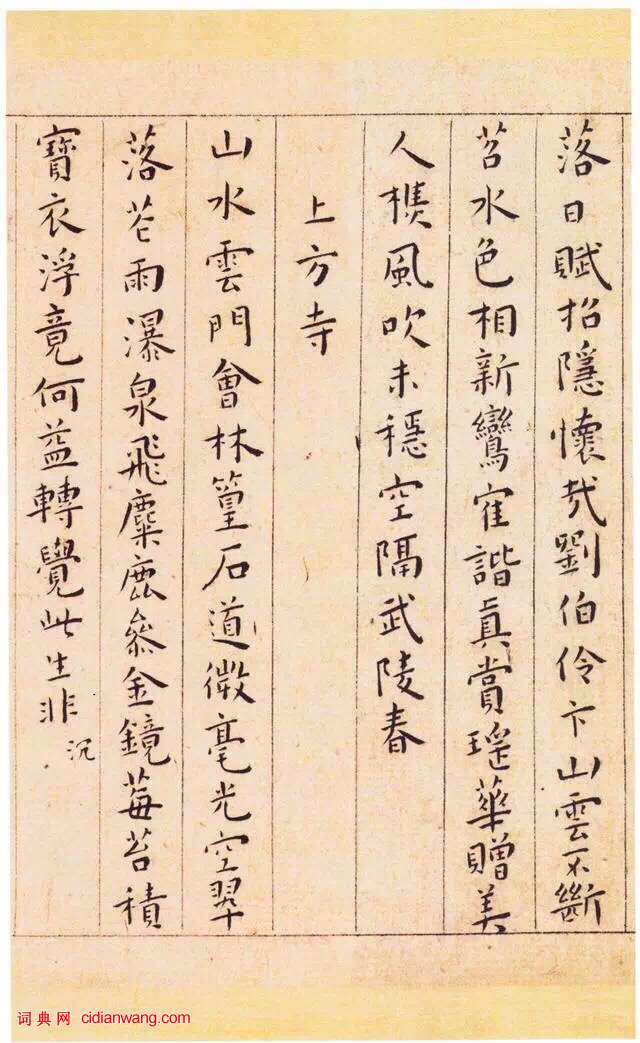 落日賦招隱懷哉劉伯伶卞山雲不斷
苕水色相新鸞寉諧真賞瑤華贈美
人風吹未穩空隔武陵春
上方寺
山水雲門會林篁石道微毫光空翠
落花雨瀑泉飛麋鹿參金鏡莓苔積
寶衣浮竟何益轉覺此生非 沉
词典网 cidianwang.com